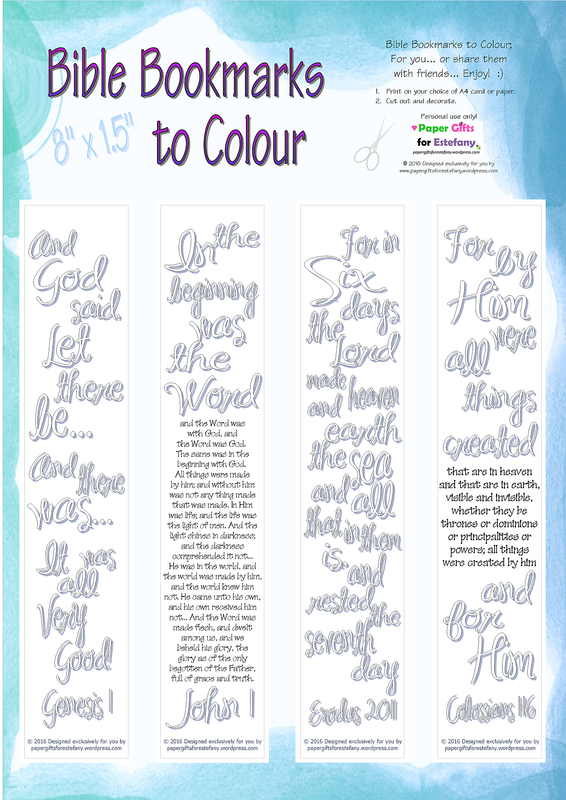 Bible Bookmarks
to Colour
8" x 1.5"
Bible Bookmarks to Colour;
For you... or share them
with friends... Enjoy! :)
1. Print on your choice of A4 card or paper.
2. Cut out and decorate.
Personal use only!
Paper Gifts
for Estefany
papergiftsforestefany.wordpress.com
© 2016 Designed exclusively for you by
www.papergiftsforestefany.wordpress.com
And
God
said,
Let
there
be...
And there
was...
It was
all
Very
Good!
Genesis 1
© 2016 Designed exclusively for you by
papergiftsforestefany.wordpress.com
In the
beginning
was
the
Word
and the Word was
with God, and
the Word was God.
The same was in the
beginning with God.
All things were made
by him; and without him
was not any thing made
that was made. In Him
was life; and the life was
the light of men. And the
light shines in darkness;
and the darkness
comprehended it not...
He was in the world, and
the world was made by him,
and the world knew him
not. He came unto his own,
and his own received him
not... And the Word was
made flesh, and dwelt
among us, and we
beheld his glory, the
glory as of the only
begotten of the Father,
full of grace and truth.
John 1
© 2016 Designed exclusively for you by
papergiftsforestefany.wordpress.com
For in
Six
days
the
Lord
made heaven
and
earth
the sea
and all
that in them
is, and
rested
the
seventh
day
Exodus 20:11
© 2016 Designed exclusively for you by
papergiftsforestefany.wordpress.com
For by
Him
were
all
things
created
that are in heaven
and that are in earth,
visible and invisible,
whether they be
thrones or dominions
or principalities or
powers; all things
were created by him
and
for
Him
Colossians 1:16
© 2016 Designed exclusively for you by
papergiftsforestefany.wordpress.com